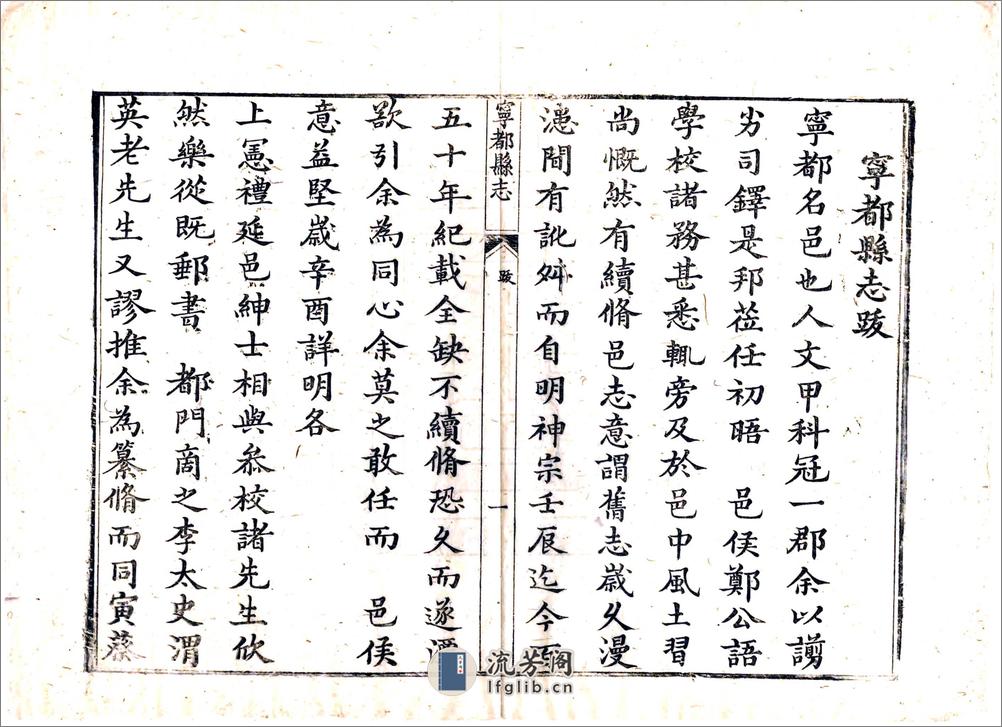 寧都縣志跋
寧都名邑也人文甲科冠一郡余以謭
劣司鐸是邦蒞任初晤 邑侯鄭公語
學校諸務甚悉輒旁及於邑中風土習
尚慨然有續脩邑志意謂舊志歲久漫
漶間有訛舛而自明神宗壬辰迄今百
寧都縣志 跋 一
五十年紀載全缺不續脩恐久而遂湮
欲引余為同心余莫之敢任而 邑侯
意益堅歲辛酉詳明各
上憲禮延邑紳士相與叅校諸先生俽
然樂從既郵書 都門商之李太史渭
英老先生又謬推余為纂脩而同寅蔡
流芳阁
lfglib.cn